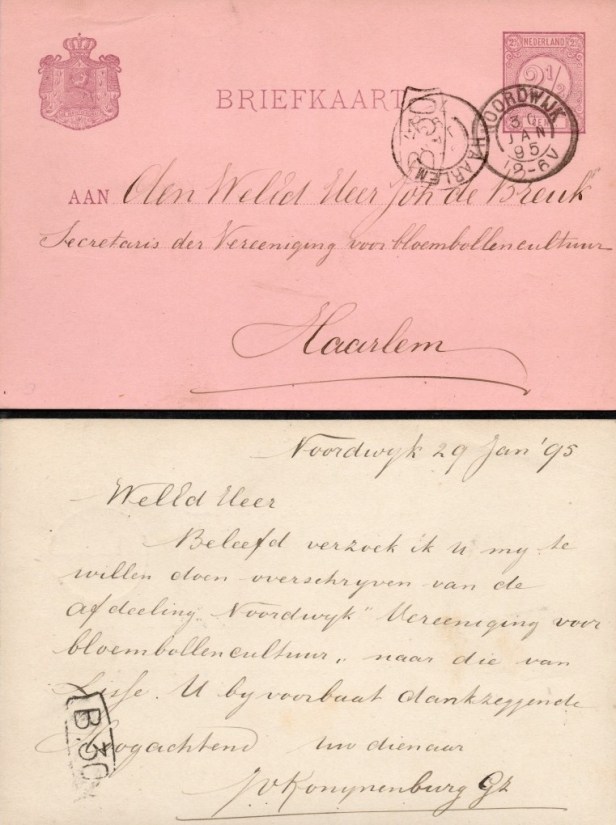 NEDERLAND
2½
BRIEFKAART
NOORDWIJK
30
JAN
95
12-6V
HAARLEM
AAN Den WelEd Heer Joh de Breuk
Secretaris der Vereeniging voor bloembollencultuur
Haarlem
Noordwyk 29 Jan '95
WelEd Heer
Beleefd verzoek ik u my te
willen doen overschryven van de
afdeeling „Noordwyk" Vereeniging voor
bloembollencultuur„ naar die van
Lisse. U by voorbaat dankzeggende
Hoogachtend uw dienaar
J v Konynenburg Gz
B.30